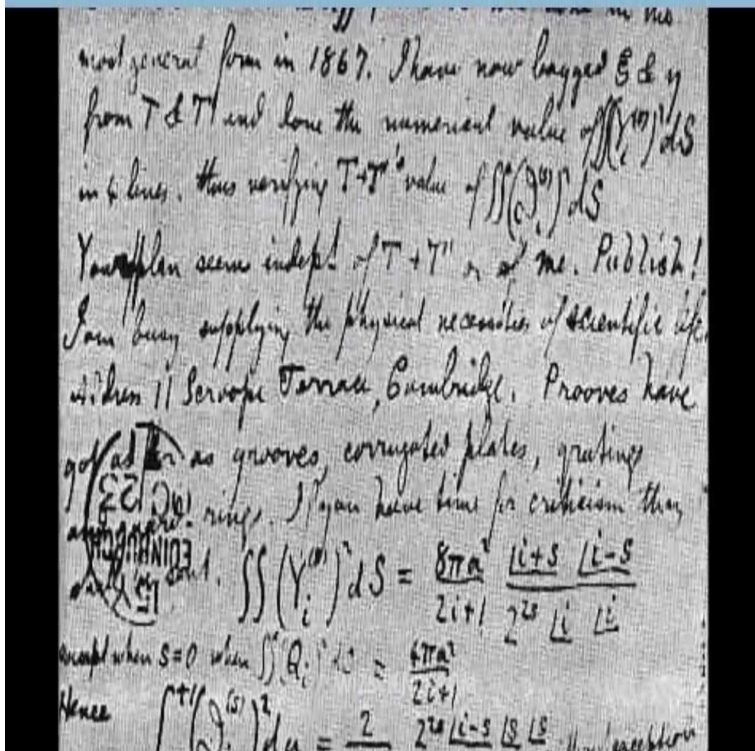 most general form in 1867. I have now bagged ξ & η
from T & T' and done the numerical value of ∬(Y_i^(s))² dS
in 4 lines, thus verifying T+T''s value of ∬(ϑ_i^(s))² dS
Your plan seems indept. of T+T' or of me. Publish!
I am busy supplying the physical necessities of scientific life.
Address 11 Scroope Terrace, Cambridge. Prooves have
got as far as grooves, corrugated plates, gratings
rings. If you have time for criticism they
∬(Y_i^(s))² dS = 8πa²/(2i+1) · |i+s |i−s / (2^(2s) |i |i)
except when s=0 when ∬(Q_i)² dS = 4πa²/(2i+1)
Hence ∫^(+1) (ϑ_i^(s))² dμ = 2 2^(2s) |i−s |s |s
EDINBURGH